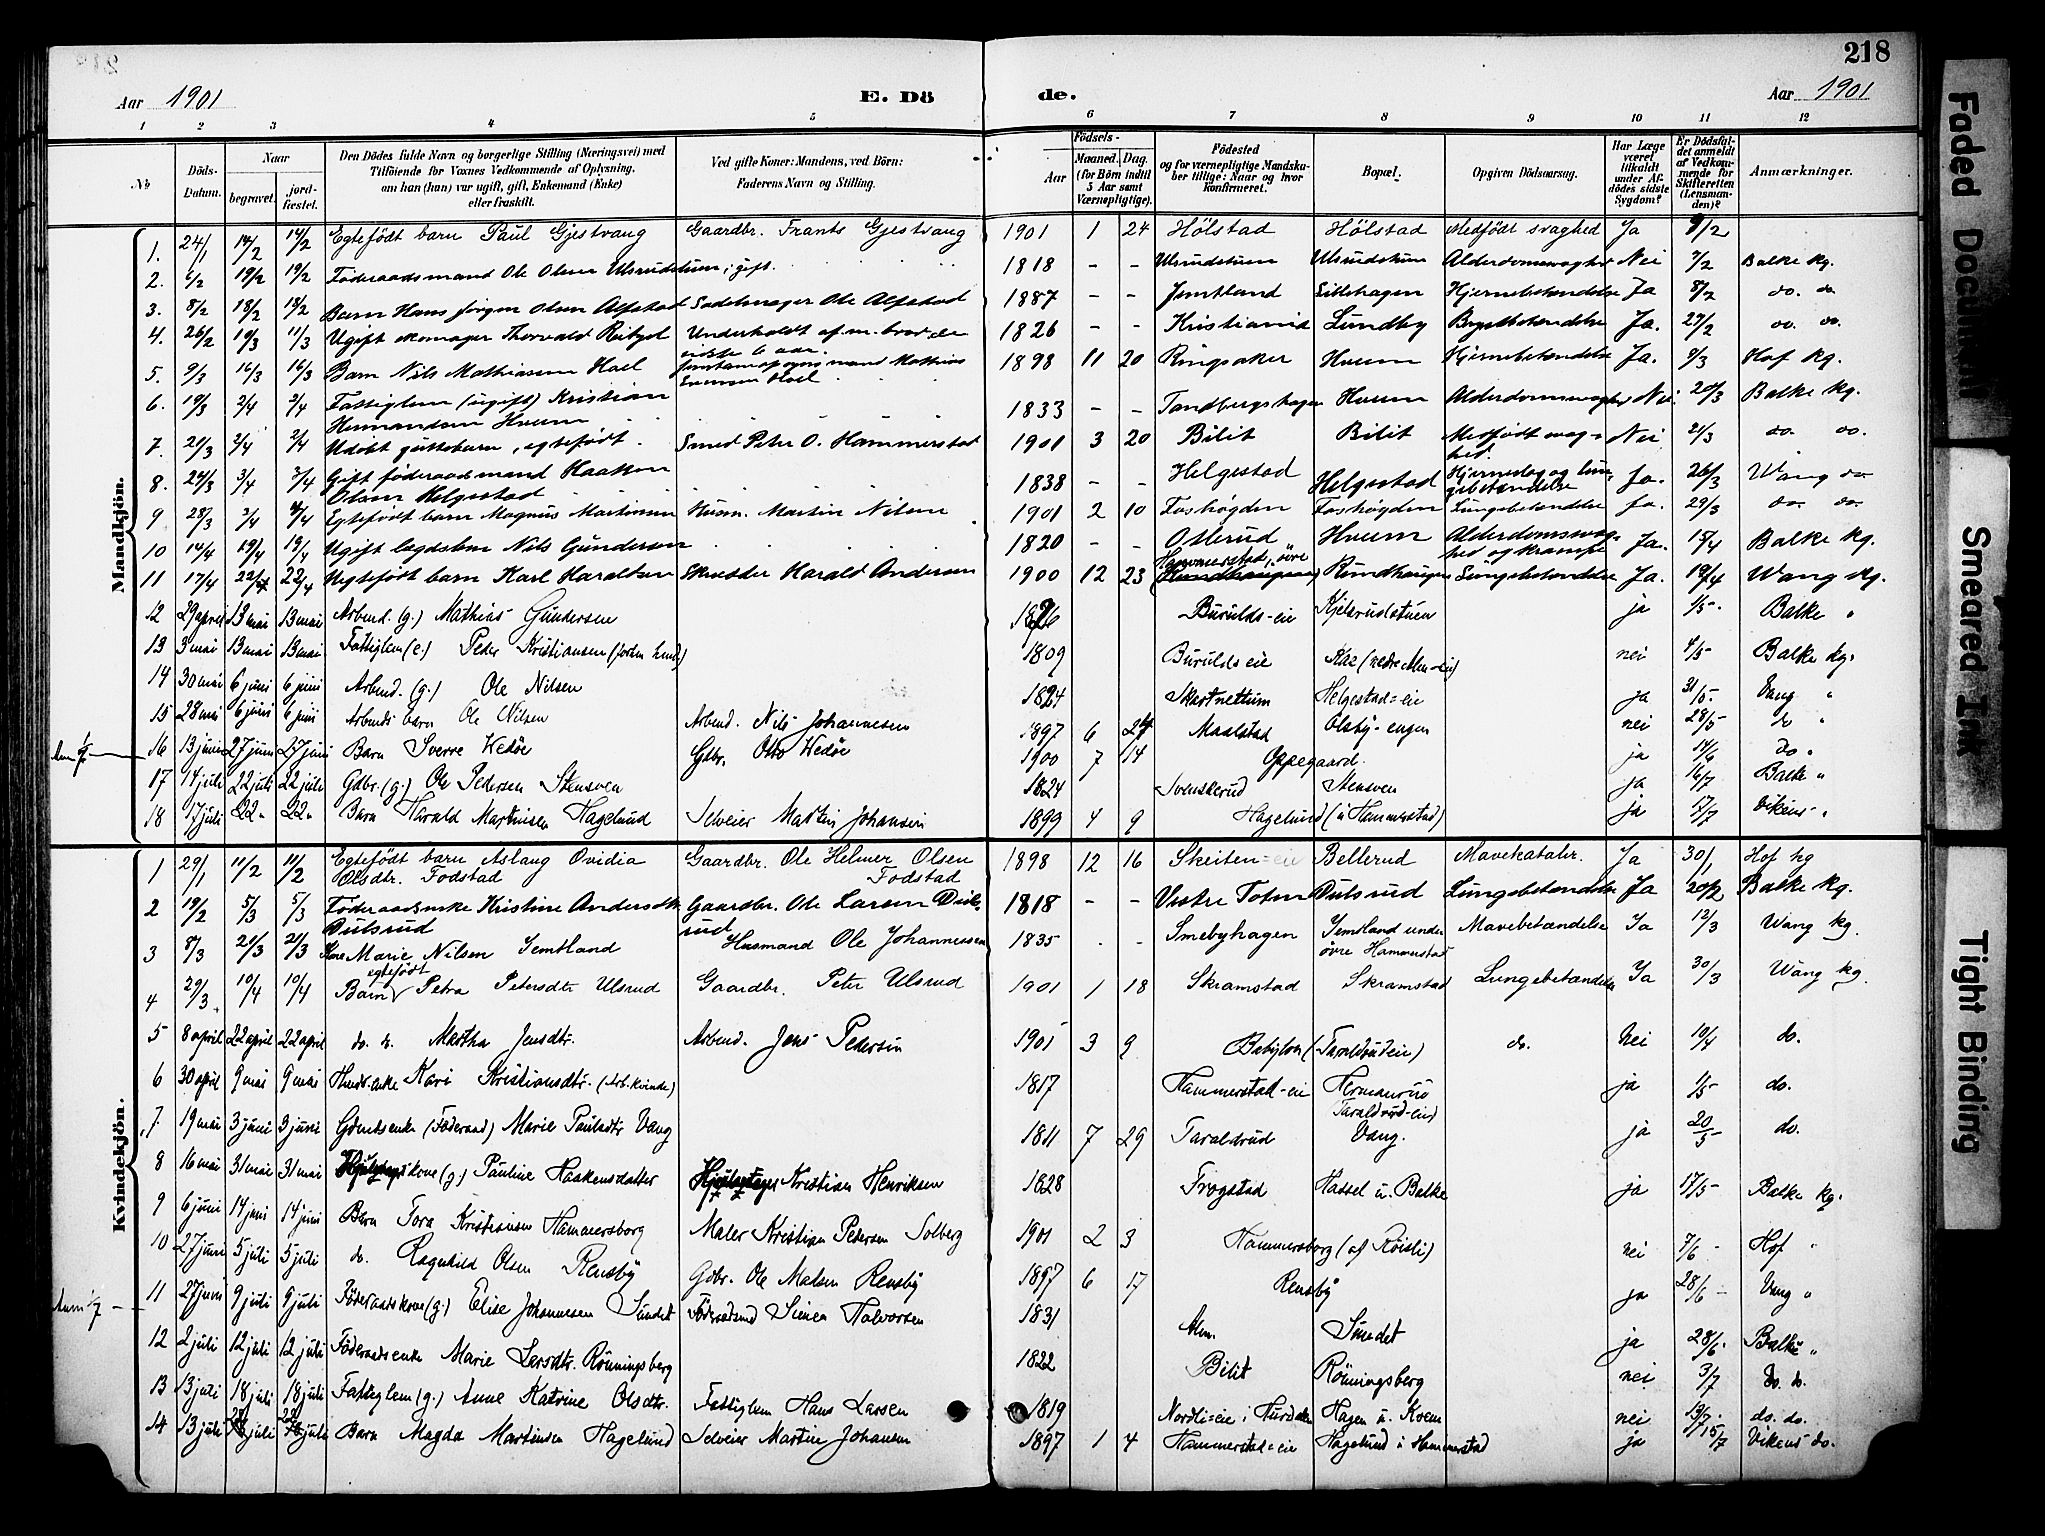 218
Aar 1901 E. Dö de. Aar 1901
1 2 3 4 5 6 7 8 9 10 11 12
No Döds-Datum. Naar begravet. jordfæstet. Den Dödes fulde Navn og borgerlige Stilling (Næringsvei) med Tilföiende for Voxnes Vedkommende af Oplysning, om han (hun) var ugift, gift, Enkemand (Enke) eller fraskilt. Ved gifte Koner: Mandens, ved Börn: Faderens Navn og Stilling. Födsels- Aar Maaned. Dag. (for Börn indtil 5 Aar samt Værnepligtige). Födested og for værnepligtige Mandskaber tillige: Naar og hvor konfirmeret. Bopæl. Opgiven Dödsaarsag. Har Læge været tilkaldt under Afdödes sidste Sygdom? Er Dödsfaldet anmeldt af Vedkommende for Skifteretten (Lensmanden)? Anmærkninger.
Mandkjön.
1. 24/1 14/2 14/2 Egtefödt barn Paul Gjestvang Gaardbr. Frants Gjestvang 1901 1 24 Hölstad Hölstad Medfödt svaghed Ja 9/2
2. 6/2 19/2 19/2 Föderaadsmand Ole Olsen Ulsrudstuen, gift. 1818 - - Ulsrudstuen Ulsrudstuen Nei 7/2 Balke kg.
3. 8/2 18/2 18/2 Barn Hans Jörgen Olsen Alfstad Sadelmager Ole Alfstad 1887 - - Jemtland Sillehagen Hjernebetændelse Ja 8/2 do. do
4. 26/2 19/3 11/3 Ugift skomager Thorvald Underholdt af m. bror de sidste 6 aar. 1826 - - Kristiania Lundby Brystbetændelse Ja. 27/2 do. do.
5. 9/3 16/3 16/3 Barn Nils Mathiasen Hoel Mathias Evensen Hoel 1898 11 20 Ringsaker Hveem Hjernebetændelse Ja. 9/3 Hof kg.
6. 19/3 2/4 2/4 Fattiglem (ugift) Kristian Hermandsen Hveem 1833 - - Tandbergshagen Hveem Nei 20/3 Balke kg.
7. 21/3 2/4 2/4 Udöbt guttebarn, egtefödt. Smed Peter O. Hammerstad 1901 3 20 Bilit Bilit Medfödt svaghed. Nei 21/3 do. do.
8. 24/3 3/4 3/4 Gift föderaadsmand Haakon Olsen Helgestad 1838 - - Helgestad Helgestad Hjerneslag og lungebetændelse Ja. 26/3 Wang do
9 28/3 3/4 4/4 Egtefödt barn Magnus Martinsen Husm. Martin Nilsen 1901 2 10 Foshögden Foshögden Lungebetændelse Ja. 29/3 do. do.
10 14/4 19/4 19/4 Ugift lægdslem Nils Gundersen 1820 - - Osterud Hveem Alderdomssvaghed og krampe Ja. 15/4 Balke kg.
11 17/4 22/4 22/4 Uegtefödt barn Karl Haraldsen Skrædder Harald Andersen 1900 12 23 Hammerstad, övre (Rundhaugen) Rundhaugen Lungebetændelse Ja. 19/4 Wang kg.
12 29 april 13 mai 13 mai Arbmd. (g.) Mathias Gundersen Burulds-eie Kjelsrudstuen ja 1/5- Balke "
13 3 mai 13 mai 13 mai Fattiglem (e.) Peder Kristiansen 1809 Burulds eie nei 4/5- Balke kg.
14 30 mai 6 juni 6 juni Arbmd. (g.) Ole Nilsen 1824 Skartnettum Helgestad-eie ja 31/5- Vang "
15 28 mai 6 juni 6 juni Arbmds barn Ole Nilsen Arbmd. Nils Johannesen 1897 6 24 Maalstad Olsby-engen nei 28/5 do "
16 13 juni 27 juni 27 juni Barn Sverre Hedöe Gdbr. Otto Hedöe 1900 7 14 Oppegaard. ja 14/6 do "
17 14 juli 22 juli 22 juli Gdbr. (g.) Ole Pedersen Stensven 1824 Svenskerud Stensven ja 16/7 Balke "
18 17 juli 22 " 22 " Barn Harald Martinsen Hagelund Selveier Martin Johansen 1899 4 9 Hagelund (u Hammerstad) ja 17/7 Vikens "
Kvindekjön.
1 29/1 11/2 11/2 Egtefödt barn Aslaug Ovidia Olsdtr. Fodstad Gaardbr. Ole Helmer Olsen Fodstad 1898 12 16 Skeiten-eie Bellerud Mavekatahr. Ja 30/1 Hof kg
2 19/2 5/3 5/3 Föderaadsenke Kristine Andersdtr. Dulsrud Gaardbr. Ole Larsen Dulsrud 1818 - - Vestre Toten Dulsrud Lungebetændelse Ja 20/2 Balke kg.
3 8/3 21/3 21/3 Kone Marie Nilsen Jemtland Husmand Ole Johannessen 1835 - - Smebyhagen Jemtland under övre Hammerstad Mavebetændelse Ja 12/3 Wang kg.
4 29/3 10/4 10/4 Barn egtefödt Petra Petersdtr Ulsrud Gaardbr. Peter Ulsrud 1901 1 18 Skramstad Skramstad Lungebetændelse Ja 30/3 Wang kg.
5 8 april 22 april 22 april do. Martha Jensdtr. Arbmd. Jens Pedersen 1901 3 9 Babylon (Taraldrudeie) do. nei 10/4 do.
6 30 april 9 mai 9 mai Kari Kristiansdtr. (Arb.kvinde) 1817 Hammerstad-eie (Taraldrud-eie) ja 1/5- do.
7. 19 mai 3 juni 3 juni Gdmdsenke (Föderaad) Marie Paulsdtr Vang 1811 7 29 Taraldrud Vang. ja 20/5- do.
8 16 mai 31 mai 31 mai kone (g.) Pauline Haakensdatter Kristian Henriksen 1828 Frogstad Hassel u. Balke ja 17/5- Balke kg.
9 6 juni 14 juni 14 juni Barn Tora Kristiansen Hammersborg Maler Kristian Pedersen Solberg 1901 2 3 Hammersborg (af Röisli) nei 7/6- Hof "
10 27 juni 5 juli 5 juli do. Ragnhild Olsen Rensby Gdbr. Ole Madsen Rensby 1897 6 17 Rensby ja 28/6- Vang "
11 27 juni 9 juli 9 juli Föderaadskone (g.) Elise Johannesen Sundet Föderaadsmd Simen Halvorsen 1831 Alm. Sundet ja 28/6- Balke "
12 2 juli 12 juli 12 juli Föderaadsenke Marie Larsdtr. Rönningsberg 1822 Bilit Rönningsberg nei 3/7 do. do.
13 13 juli 18 juli 18 juli Fattiglem (g.) Anne Katrine Olsdtr. Fattiglem Hans Larsen 1819 Nordli-eie i Hurdalen Hagen u. Kvem nei 13/7 do. do.
14 13 juli juli juli Barn Magda Martinsen Hagelund Selveier Martin Johansen 1897 1 4 Hammerstad-eie Hagelund i Hammerstad ja 15/7 Vikens do.
Faded Document
Smeared Ink
Tight Binding